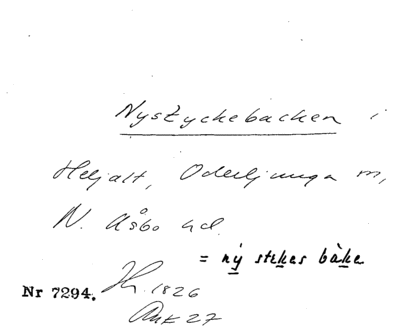 Nystyckebacken i
Heljalt, Oderljunga m,
N. Åsbo hd.
= ný stekes bàke
Nr 7294. 1826
Ank 27